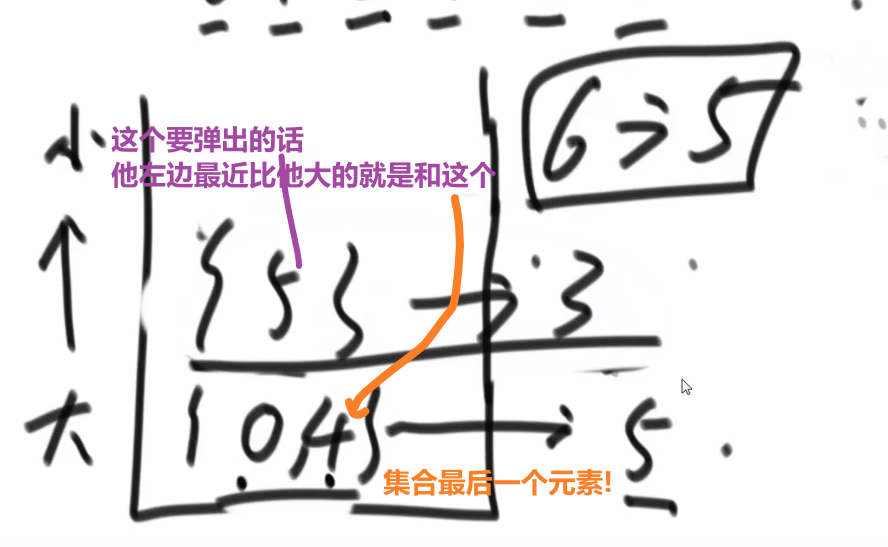 6 > 5
小
这个要弹出的话
他左边最近比他大的就是和这个
↑
{ 5 } → 3
大
{ 0, 4 } → 5
集合最后一个元素!